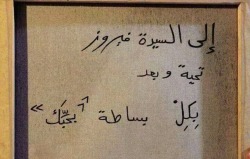 إلى السيدة فيروز
تحية وبعد
بِكِلْ بساطة "بحبّك"